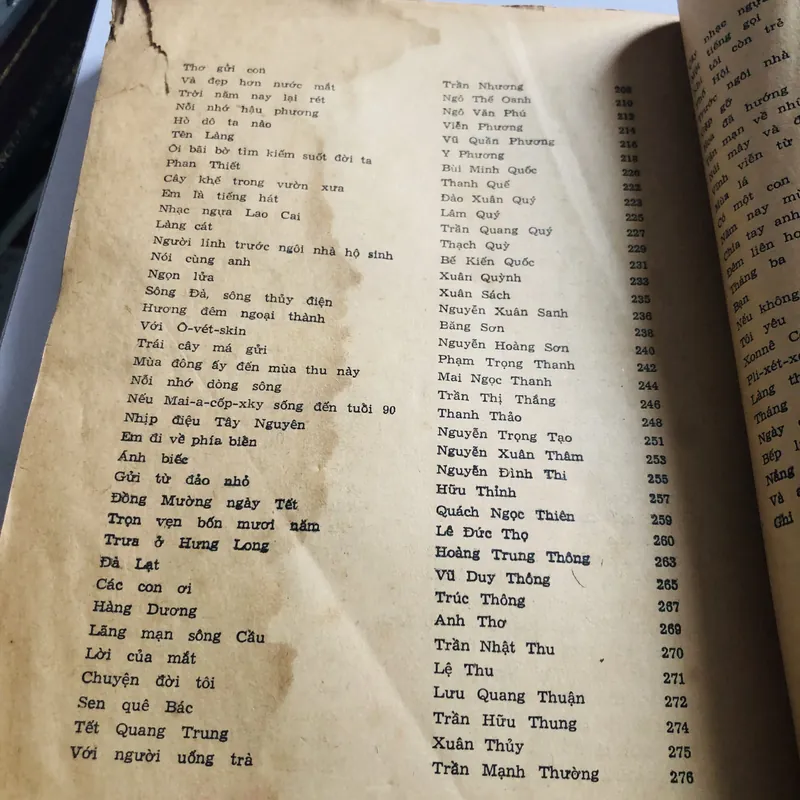 Thơ gửi con Trần Nhương 208
Và đẹp hơn nước mắt Ngô Thế Oanh 210
Trời năm nay lại rét Ngô Văn Phú 212
Nỗi nhớ hậu phương Viễn Phương 214
Hò dô ta nào Vũ Quần Phương 216
Tên Làng Y Phương 218
Ôi bãi bờ tìm kiếm suốt đời ta Bùi Minh Quốc 220
Phan Thiết Thanh Quế 222
Cây khế trong vườn xưa Đào Xuân Quý 223
Em là tiếng hát Lâm Quý 225
Nhạc ngựa Lao Cai Trần Quang Quý 227
Làng cát Thạch Quỳ 229
Người lính trước ngôi nhà hộ sinh Bế Kiến Quốc 231
Nói cùng anh Xuân Quỳnh 233
Ngọn lửa Xuân Sách 235
Sông Đà, sông thủy điện Nguyễn Xuân Sanh 236
Hương đêm ngoại thành Băng Sơn 238
Với Ô-vét-skin Nguyễn Hoàng Sơn 240
Trái cây má gửi Phạm Trọng Thanh 242
Mùa đông ấy đến mùa thu này Mai Ngọc Thanh 244
Nỗi nhớ dòng sông Trần Thị Thắng 246
Nếu Mai-a-cốp-xky sống đến tuổi 90 Thanh Thảo 248
Nhịp điệu Tây Nguyên Nguyễn Trọng Tạo 251
Em đi về phía biển Nguyễn Xuân Thâm 253
Ánh biếc Nguyễn Đình Thi 255
Gửi từ đảo nhỏ Hữu Thỉnh 257
Đồng Mường ngày Tết Quách Ngọc Thiên 259
Trọn vẹn bốn mươi năm Lê Đức Thọ 260
Trưa ở Hưng Long Hoàng Trung Thông 263
Đà Lạt Vũ Duy Thông 265
Các con ơi Trúc Thông 267
Hàng Dương Anh Thơ 269
Lãng mạn sông Cầu Trần Nhật Thu 270
Lời của mắt Lệ Thu 271
Chuyện đời tôi Lưu Quang Thuận 272
Sen quê Bác Trần Hữu Thung 274
Tết Quang Trung Xuân Thủy 275
Với người uống trà Trần Mạnh Thường 276
nhạc ngựa
tiếng gọi
tôi còn trẻ
Hồi
ngôi nhà
gỡ
đã hướng
mạn về
mây và
viên từ
Mùa lá
Có một con
Năm nay
Chia tay anh
Đêm liên
Tháng ba
Bạn
Nếu không
Tôi yêu
Xonnê
Pli-xét-
Làng
Tháng
Ngày
Bếp
Nắng
Và
Ghi